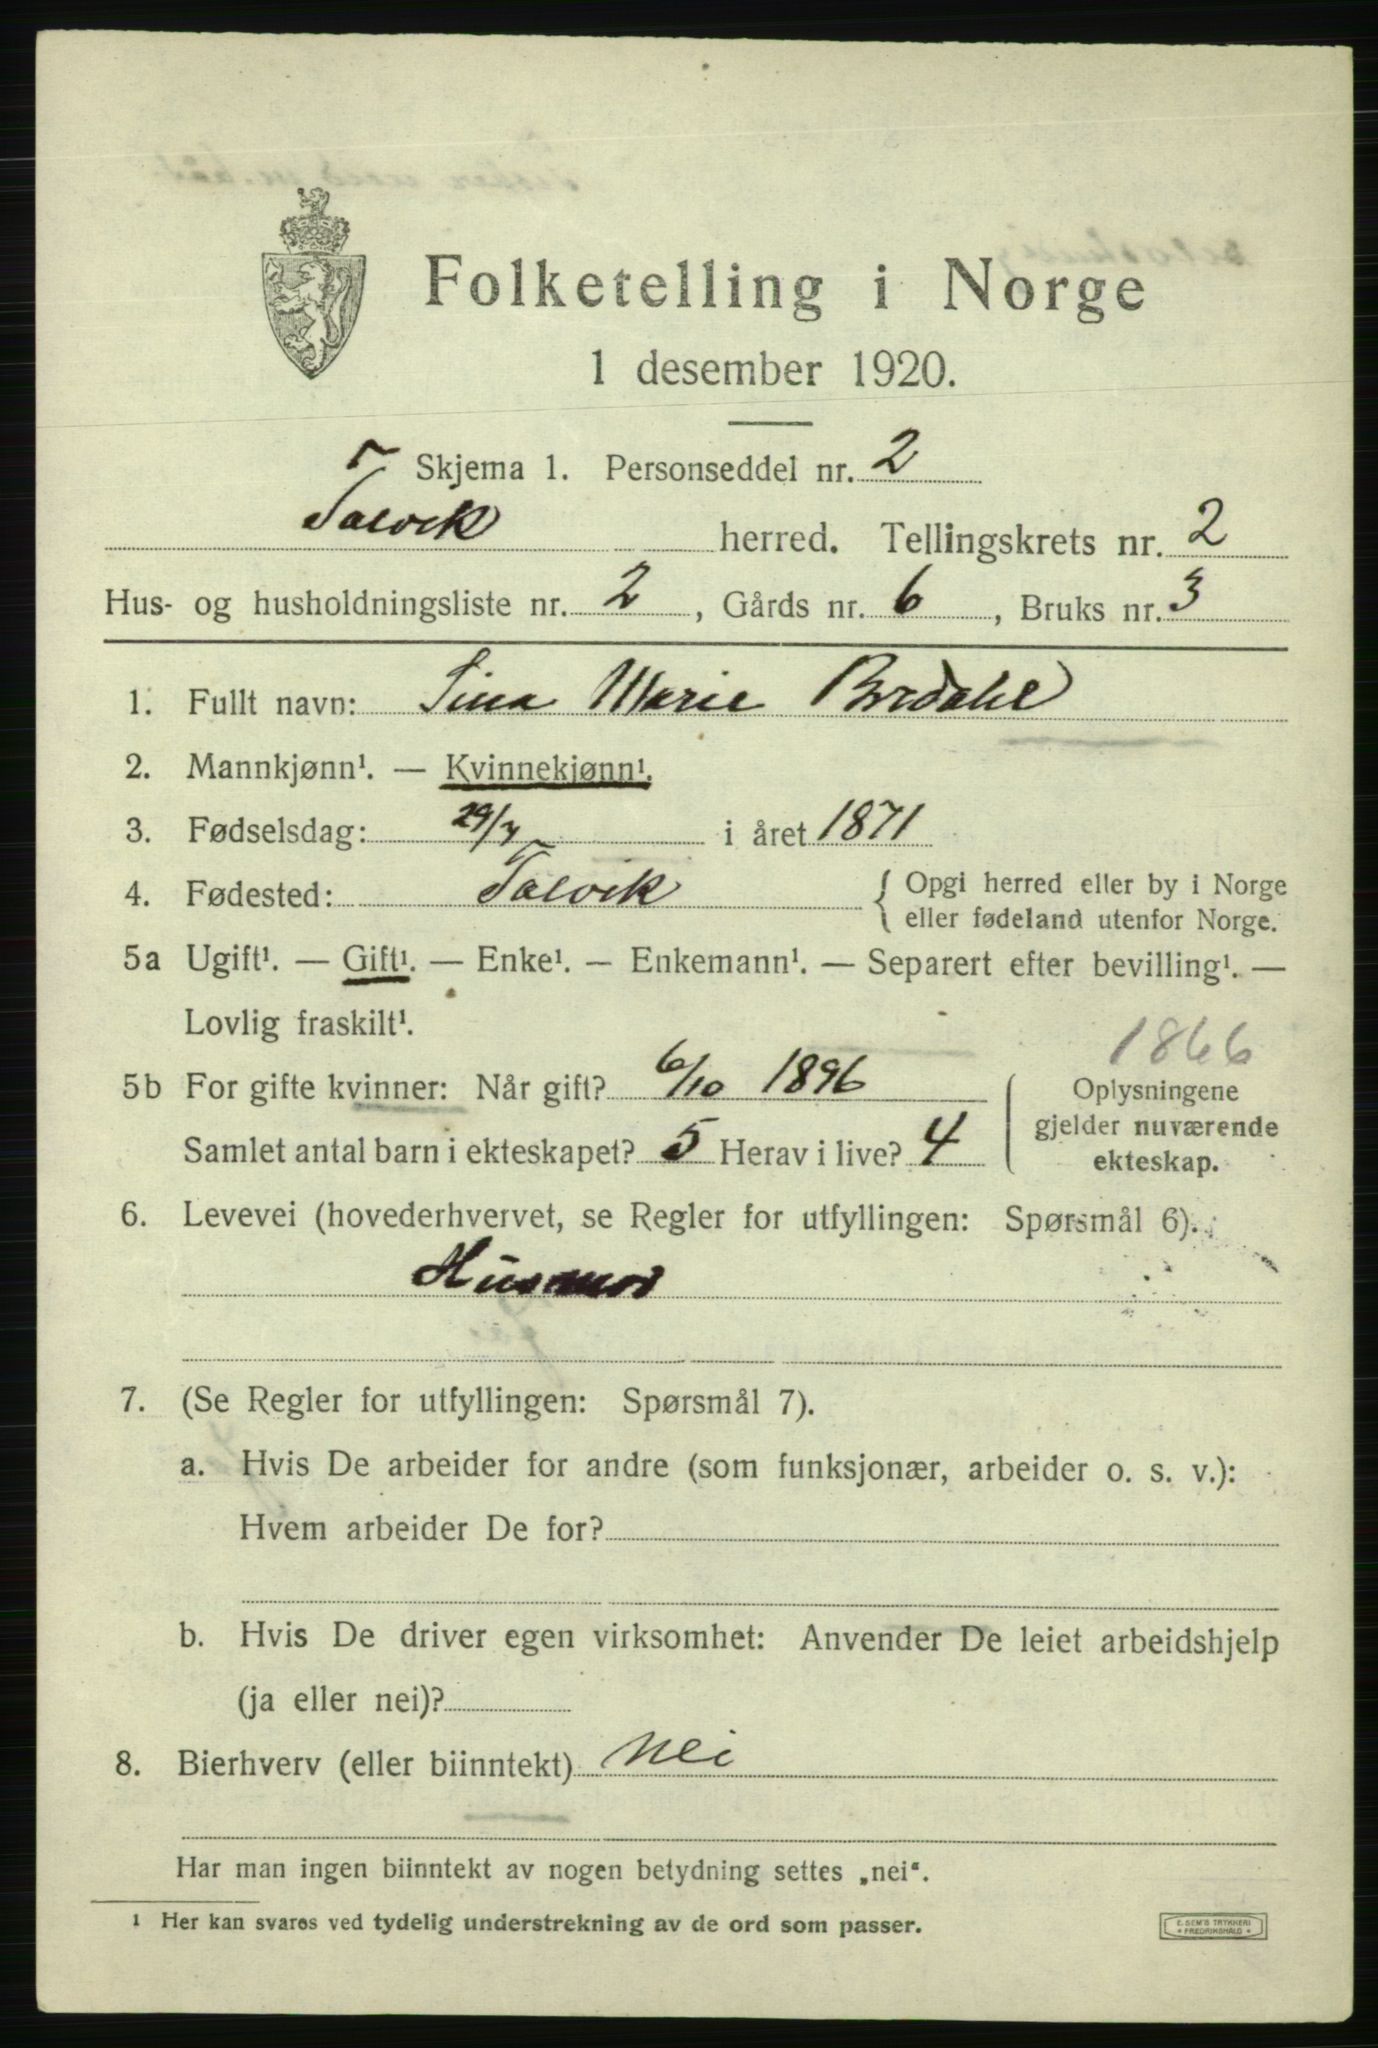 Folketelling i Norge
1 desember 1920.
Skjema 1. Personseddel nr. 2
Talvik herred. Tellingskrets nr. 2
Hus- og husholdningsliste nr. 2, Gårds nr. 6, Bruks nr. 3
1. Fullt navn: Sina Marie Bredahl
2. Mannkjønn¹. — Kvinnekjønn¹.
3. Fødselsdag: 29/7 i året 1871
4. Fødested: Talvik { Opgi herred eller by i Norge
eller fødeland utenfor Norge.
5a Ugift¹. — Gift¹. — Enke¹. — Enkemann¹. — Separert efter bevilling¹. —
Lovlig fraskilt¹.
1866
5b For gifte kvinner: Når gift? 6/10 1896
Oplysningene
gjelder nuværende
ekteskap.
Samlet antal barn i ekteskapet? 5 Herav i live? 4
6. Levevei (hovederhvervet, se Regler for utfyllingen: Spørsmål 6).
Husmor
7. (Se Regler for utfyllingen: Spørsmål 7).
a. Hvis De arbeider for andre (som funksjonær, arbeider o. s. v.):
Hvem arbeider De for?
b. Hvis De driver egen virksomhet: Anvender De leiet arbeidshjelp
(ja eller nei)?
8. Bierhverv (eller biinntekt) Nei
Har man ingen biinntekt av nogen betydning settes „nei“.
1 Her kan svares ved tydelig understrekning av de ord som passer.
E. SEM'S TRYKKERI
* FREDRIKSHALD *